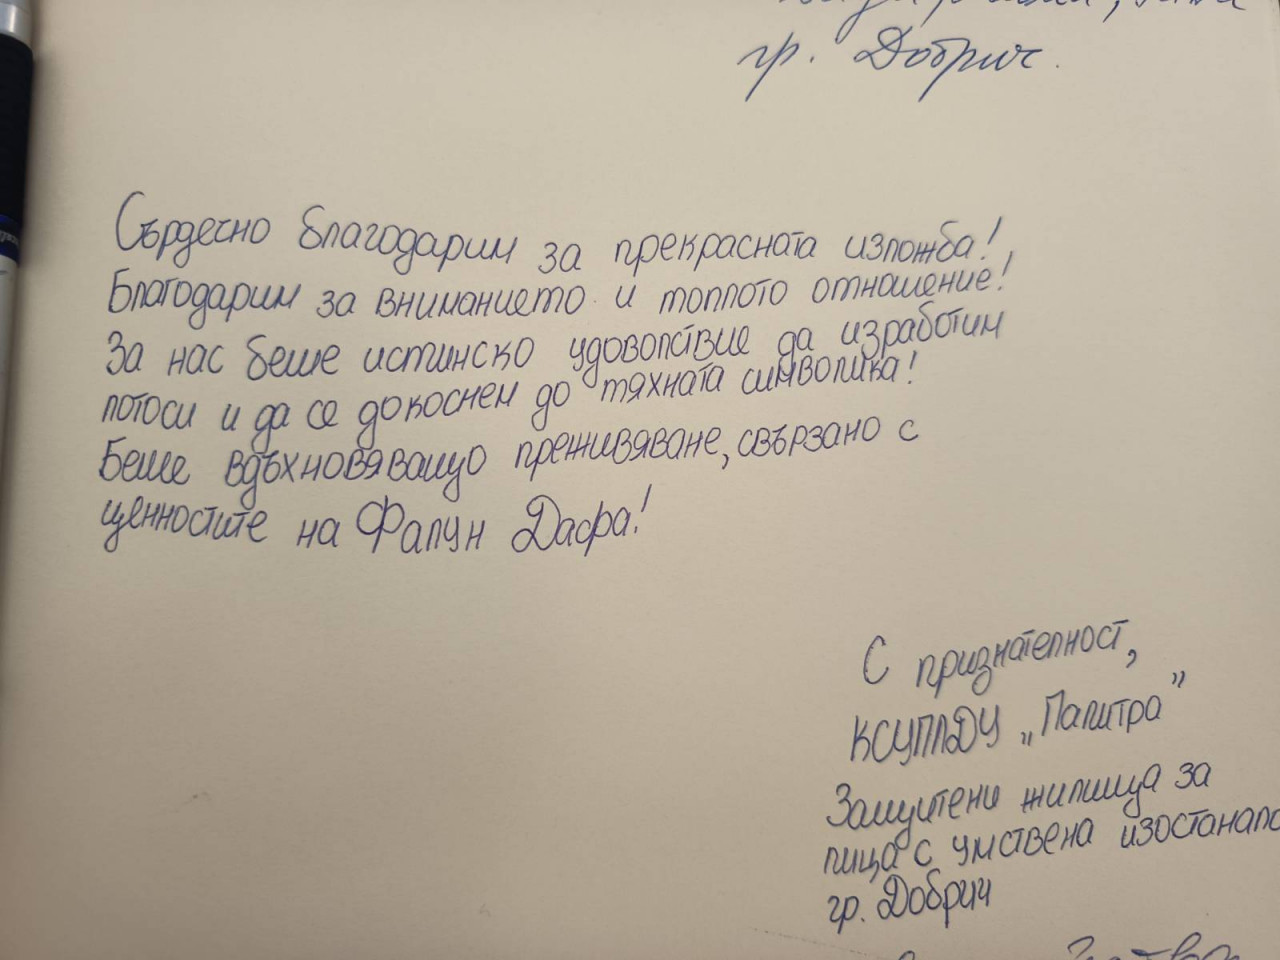 гр. Добрич.
Сърдечно благодарим за прекрасната изложба!
Благодарим за вниманието и топлото отношение!
За нас беше истинско удоволствие да изработим
лотоси и да се докоснем до тяхната символика!
Беше вдъхновяващо преживяване, свързано с
ценностите на Фалун Дафа!
С признателност,
КСУПЛДУ „Палитра”
Защитени жилища за
лица с умствена
гр. Добрич